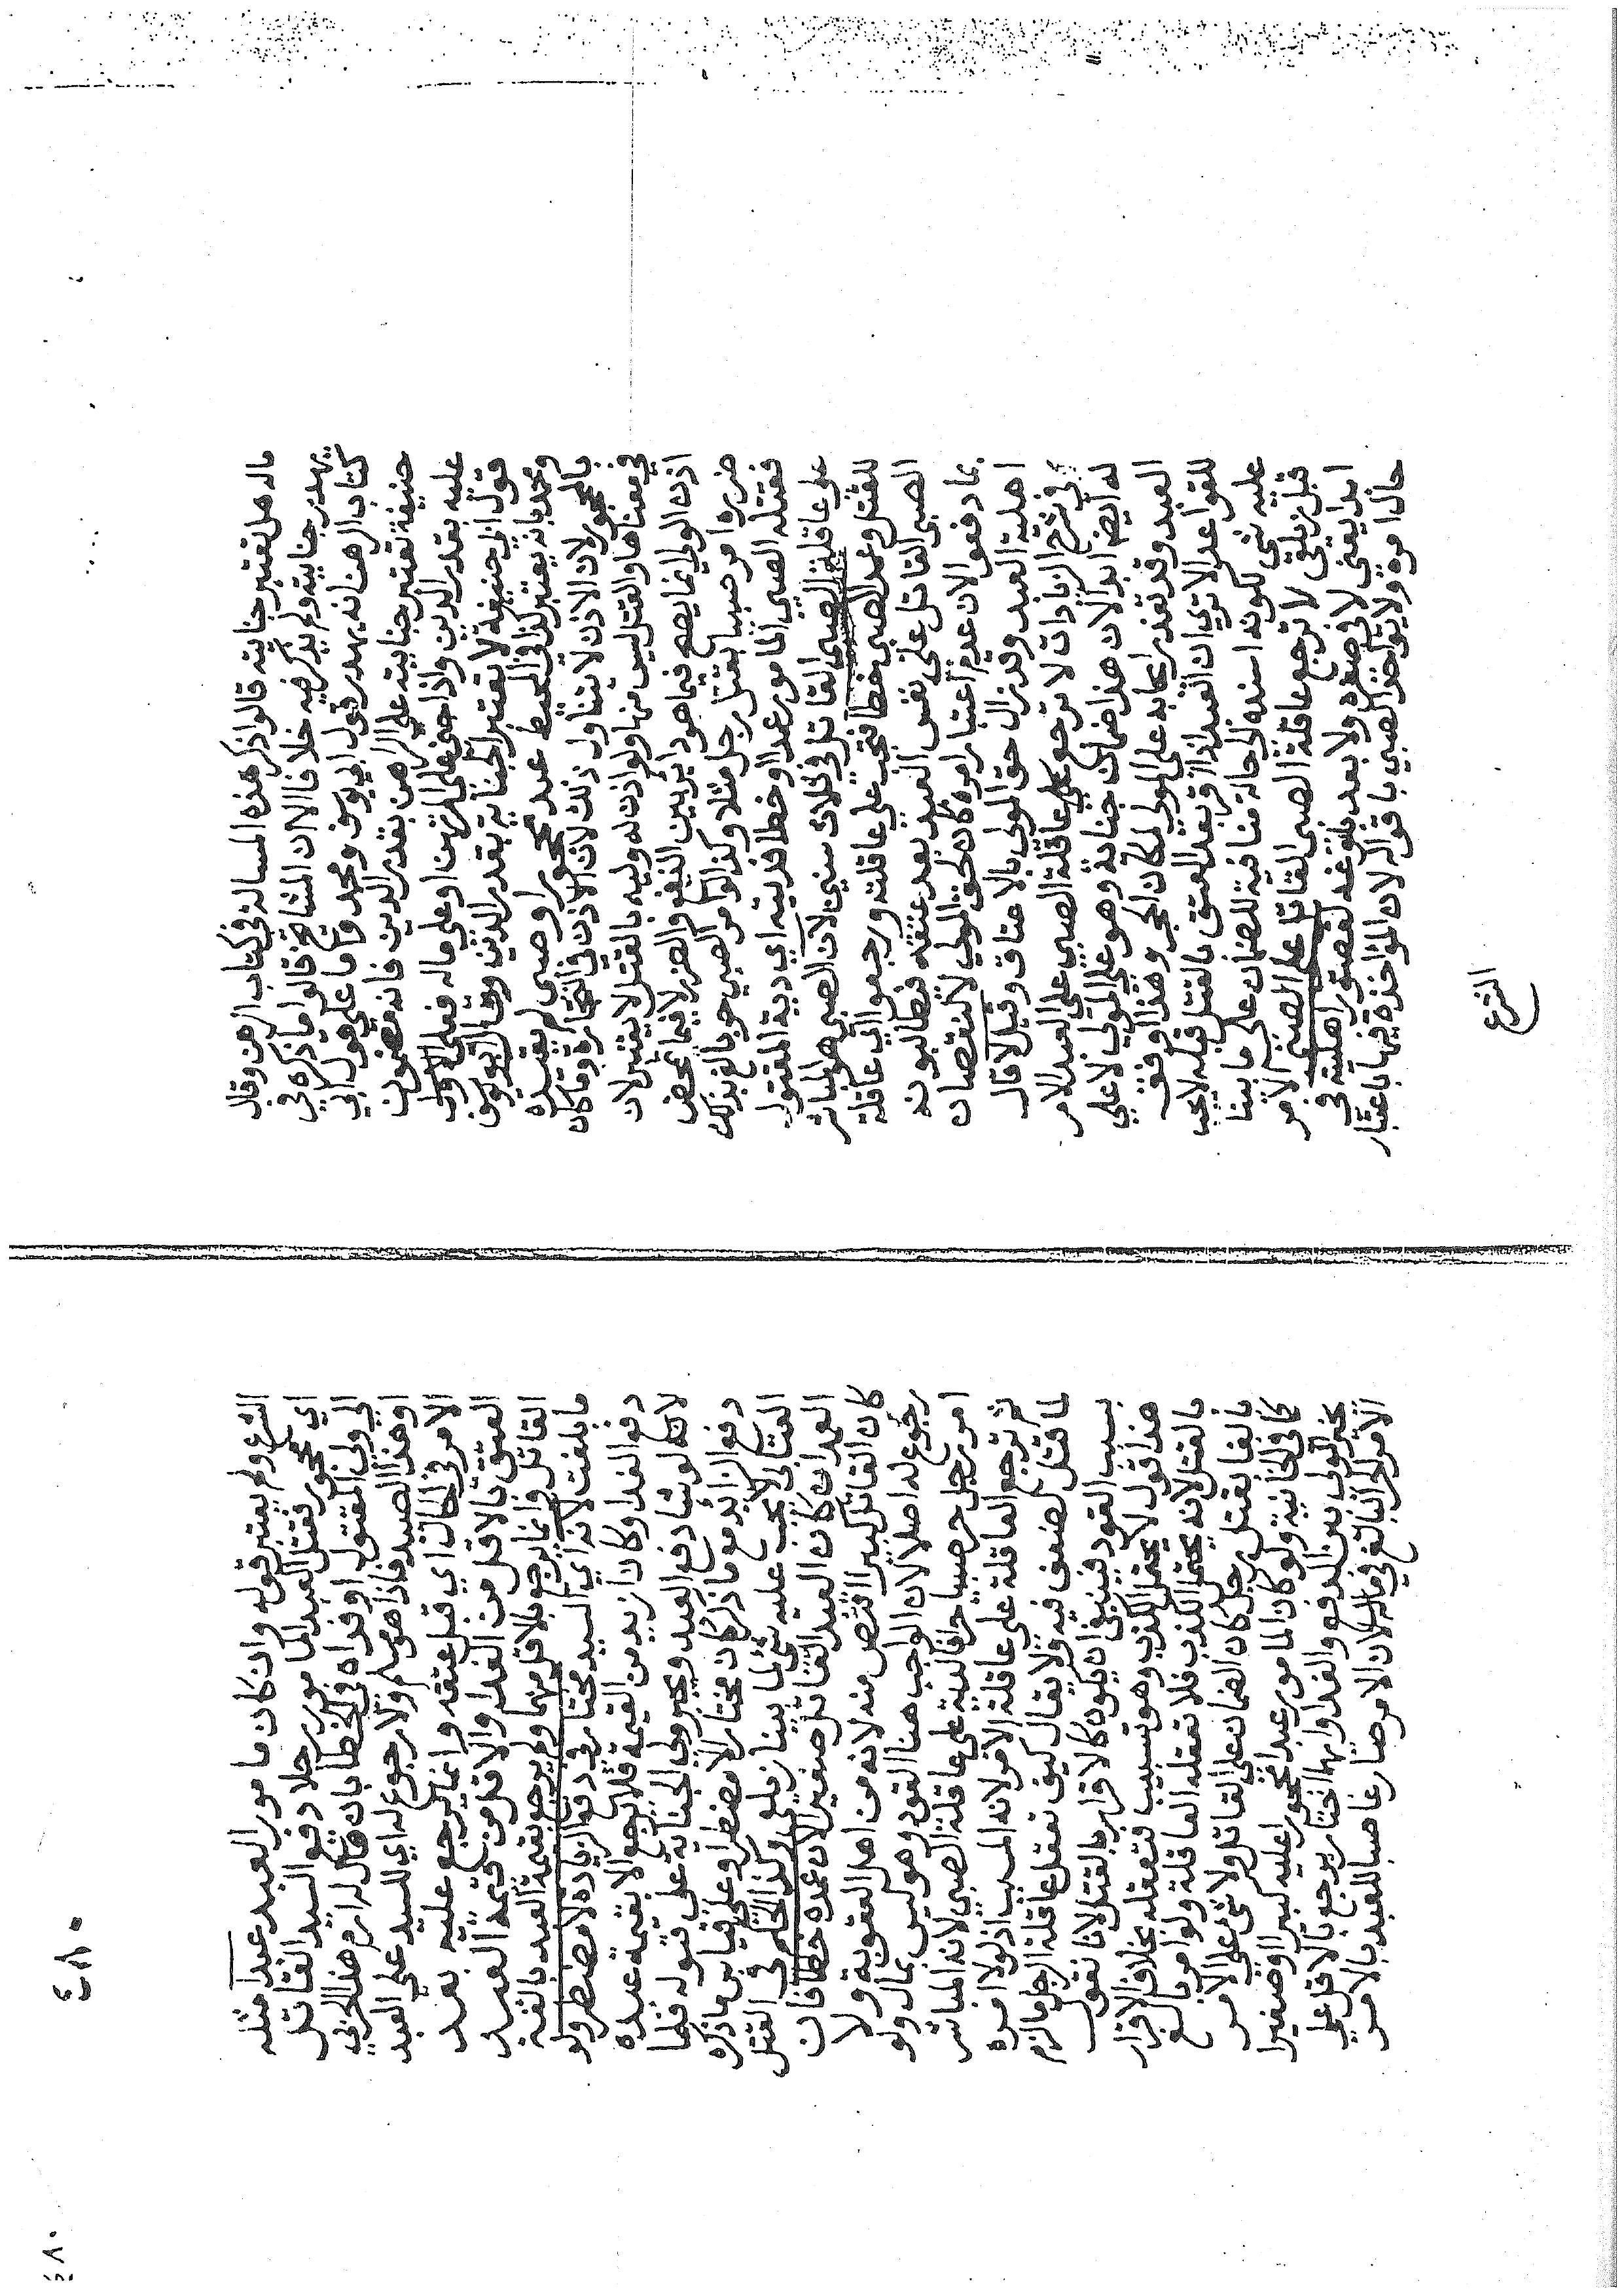 ماله هل تعتبر جنايته قالوا ذكر هذه المسالة في كتاب الرهن وقال
يهدر جنايته ولم يذكر فيه خلافا الا ان المشايخ قالوا ما ذكره في
كتاب الرهن انه يهدر قول ابي يوسف ومحمد واما على قول ابي
حنيفة تعتبر جنايته على الراهن بقدر الدين فانه مضمون
عليه بقدر الدين واذا جنى على المرتهن او على ماله فعلى الاول
فقول ابي حنيفة لا تعتبر الجناية بقدر الدين وقال ابو يوسف
ومحمد بانه يعتبر كذا في المحيط عبد محجور او صبي لم يقيده
بالمحجور لان الاذن لا يتناول ذلك لان الاذن في التجارة وما كان
في معناها والقتل ليس منها ولو اذن له وليه بالقتل لا يعتبر لان
اذن الولي انما يصح فيما هو دائر بين النفع والضرر لا فيما تمحض
ضررا امر صبيا بقتل رجل مثلا وكذا لو امر الصبي حر بالغ بذلك
فقتله الصبي المامور عمدا او خطا فديته اي دية المقتول
على عاقلة الصبي القاتل في ثلاث سنين لان الصبي هو المباشر
للقتل وعمد الصبي خطا فتجب على عاقلته ورجعوا اي عاقلة
الصبي القاتل على نفس العبد بعد عتقه فيطالبونه
بما دفعوا لان عدم اعتبار امره كان لحق المولى لا لنقصان
اهلية العبد وقد زال حق المولى بالاعتاق وقيل لا قال
في شرح الزيادات لا ترجع على عاقلة الصبي على العبد الامر
له ايضا ابدا لان هذا ضمان جناية وهو على المولى لا على
العبد وقد تعذر ايجابه على المولى لمكان الحجر وهذا اوفق
للقواعد الا ترى ان العبد اذا اقر بعد العتق بالقتل قبله لا يجب
عليه شي لكونه اسنده الى حالة منافية للضمان على ما بينا
قبل زيلعي لا ترجع عاقلة الصبي القاتل على الصبي الامر
ابدا يعني لا في صغره ولا بعد بلوغه لقصور اهليته في
حال امره ولا يؤاخذ الصبي باقواله لان المؤاخذة فيها باعتبار
الشرع
الشرع ولم يعتبر قوله وان كان مامور العبد عبدا مثله
اي محجور فقتل العبد المامور رجلا دفع السيد القاتل
الى ولي المقتول او فداه في الخطا بان قال له ارم هذا الحربي
او هذا الصيد فاذا هو مسلم ولا رجوع له اي للسيد على العبد
الامر في الحال اي قبل عتقه وانما يرجع عليه بعد
العتق بالاقل من الفداء والاقل من قيمة العبد
القاتل وانما يرجع بالاقل منهما ولم يرجع بقيمة العبد بالغة
ما بلغت لانه اي السيد مختار في دفع الزيادة لا مضطر ولو
دفع الفداء وكان ازيد من القيمة فلا يرجع الا بقيمة عبده
لانه لو شا دفع العبد ويجبر ولي الجناية على قبوله فلما
دفع الزايد مع ما ذكر كان مختارا لا مضطرا وعلى قياس ما ذكره
العتابي لا يجب عليه شي لما بينا زيلعي وكذا الحكم في القتل
العمد ان كان العبد القاتل صغيرا لان عمده خطا فان
كان القاتل كبيرا اقتص منه لانه من اهل العقوبة ولا
رجوع له اصلا لان الواجب هنا القود وهو ليس بمال ولو
امر رجل حر صبيا حرا فالدية على عاقلة الصبي لانه المباشر
ثم ترجع العاقلة على عاقلة الامر لانه المسبب اذ لولا امره
لما قتل لضعف فيه ولا يقال كيف تعقل عاقلة الرجل ما لزم
بسبب القود فينبغي ان يكون كالاقرار بالقتل لانا نقول
هذا قول لا يحتمل الكذب وهو تسبيب فتعقله بخلاف الاقرار
بالقتل لانه يحتمل الكذب فلا تعقله العاقلة ولو امر بالغ
بالغا بقتل رجل كان الضمان على القاتل ولا شي على الامر
كما في الخانية ولو كان المامور عبدا محجورا عليه كبيرا او صغيرا
يخير المولى بين الدفع والفداء وايهما اختار يرجع بالاقل على
الامر الحر البالغ في ماله لان الامر صار غاصبا للعبد بالامر
٤٨٠
٤٨٠